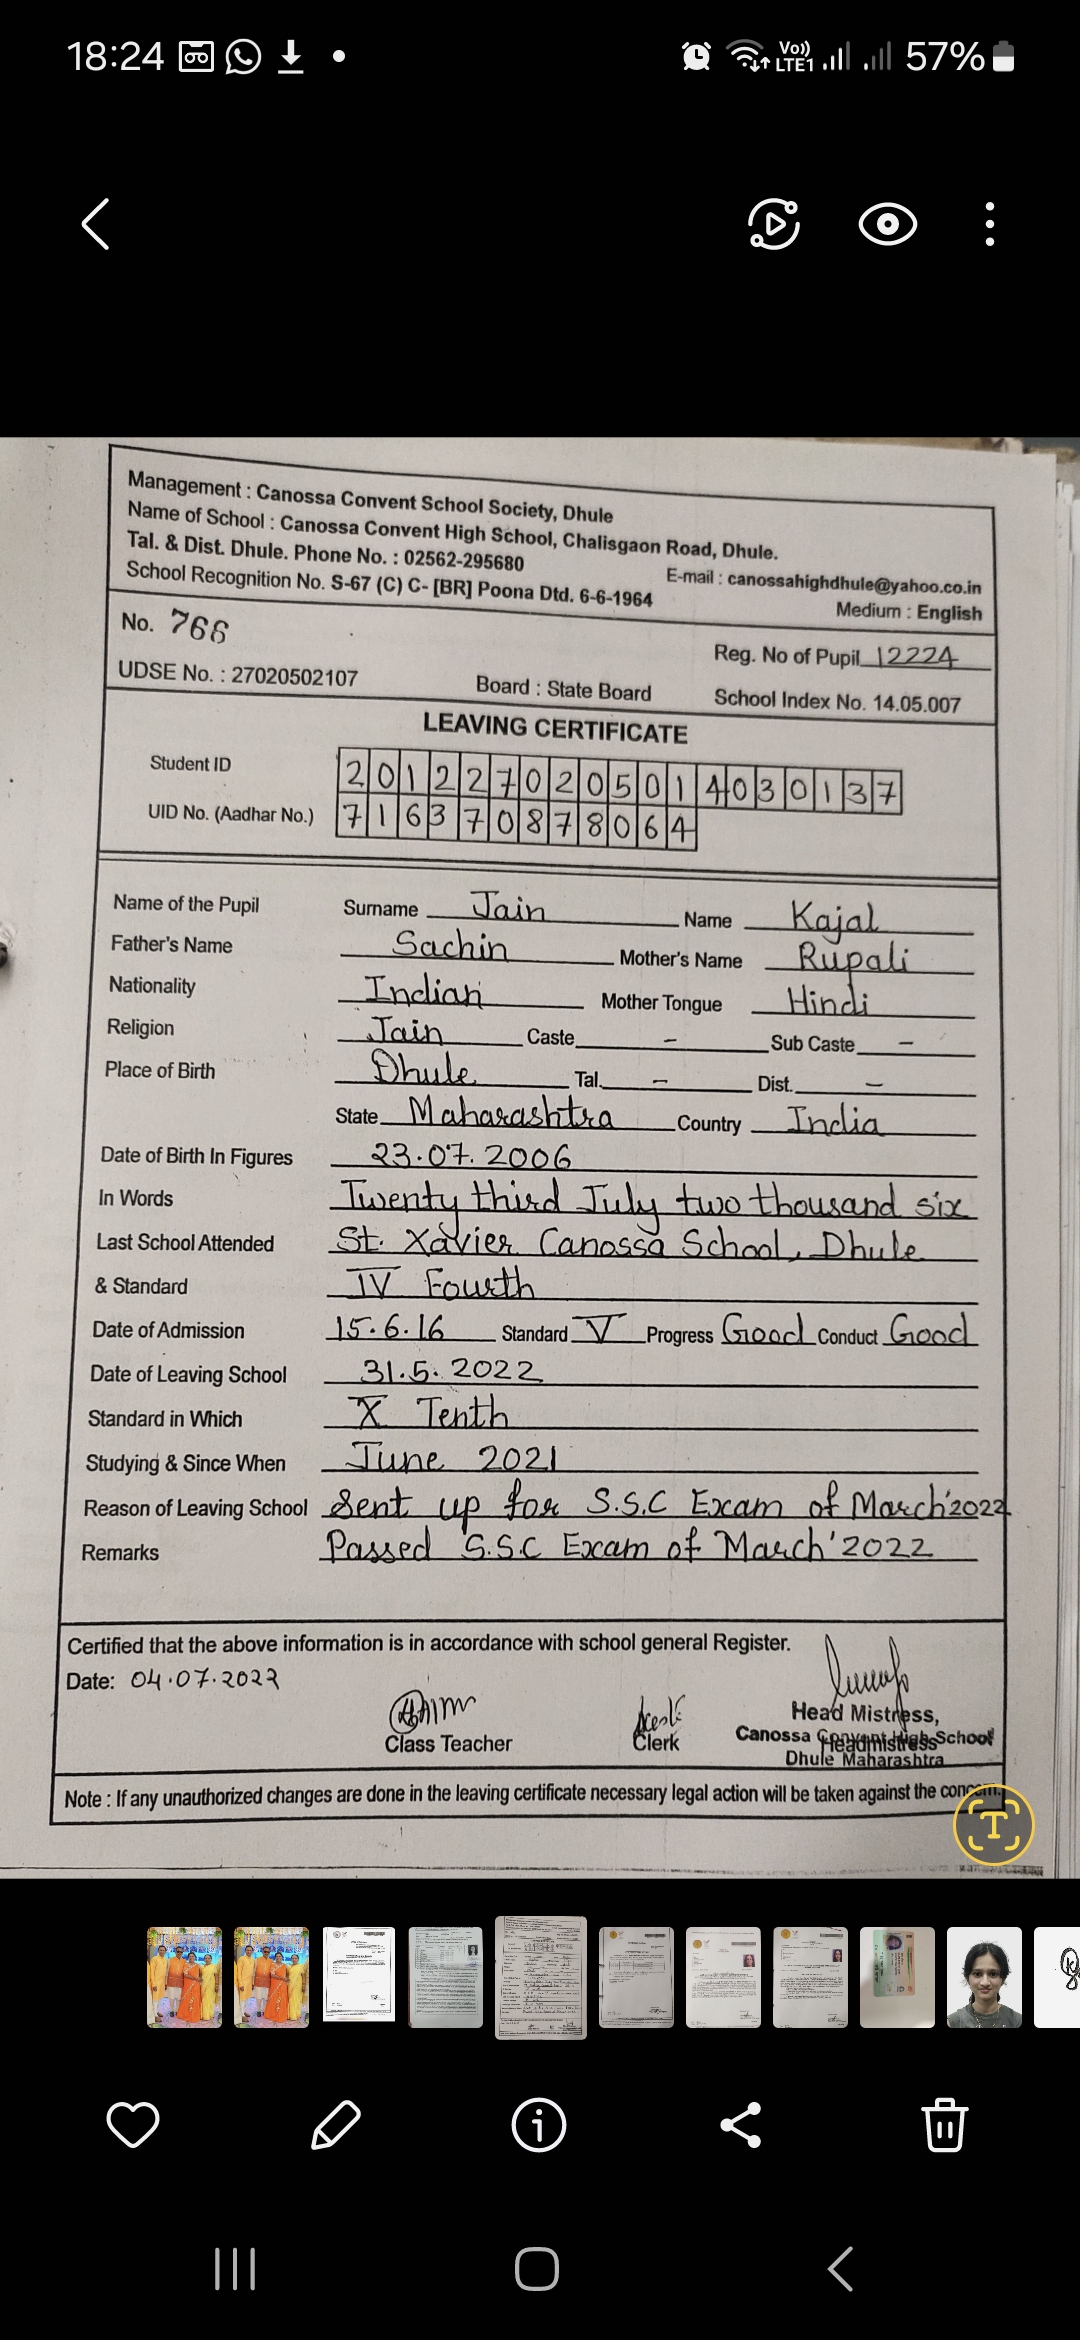 18:24
Vo))
LTE1
57%
Management : Canossa Convent School Society, Dhule
Name of School : Canossa Convent High School, Chalisgaon Road, Dhule.
Tal. & Dist. Dhule. Phone No. : 02562-295680
E-mail : canossahighdhule@yahoo.co.in
School Recognition No. S-67 (C) C- [BR] Poona Dtd. 6-6-1964
Medium : English
No. 766
Reg. No of Pupil 12224
UDSE No. : 27020502107
Board : State Board
School Index No. 14.05.007
LEAVING CERTIFICATE
Student ID 2012270205014030137
UID No. (Aadhar No.) 716370878064
Name of the Pupil Surname Jain Name Kajal
Father's Name Sachin Mother's Name Rupali
Nationality Indian Mother Tongue Hindi
Religion Jain Caste - Sub Caste -
Place of Birth Dhule Tal. - Dist. -
State Maharashtra Country India
Date of Birth In Figures 23.07.2006
In Words Twenty third July two thousand six
Last School Attended St. Xavier Canossa School, Dhule
& Standard IV Fourth
Date of Admission 15.6.16 Standard V Progress Good Conduct Good
Date of Leaving School 31.5.2022
Standard in Which X Tenth
Studying & Since When June 2021
Reason of Leaving School Sent up for S.S.C Exam of March'2022
Remarks Passed S.S.C Exam of March'2022
Certified that the above information is in accordance with school general Register.
Date: 04.07.2022
Class Teacher
Clerk
Head Mistress,
Canossa Convent High School
Headmistress
Dhule Maharashtra
Note : If any unauthorized changes are done in the leaving certificate necessary legal action will be taken against the concern.
T